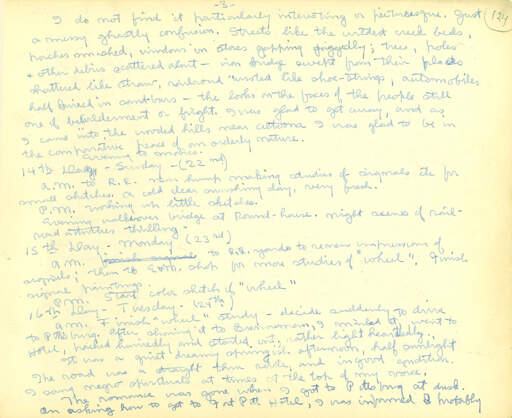 -3-
124
I do not find it particularly interesting or picturesque. Just
a messy ghastly confusion. Streets like the wildest creek beds,
porches smashed, windows in stores gapping jaggedly; trees, poles
+ other debris scattered about - iron bridge swept from their places
shattered like straw, railroad twisted like shoe-strings, automobiles
half buried in sand-bars - the looks on the faces of the people still
one of bewilderment or fright. I was glad to get away, and as
I came into the wooded hills near Altoona I was glad to be in
the comparative peace of an orderly nature.
Evening to movies.
14th Day - Sunday - (22nd)
a.m. to R.R. near hump making studies of signals etc for
small sketches. a cold clear sunshiny day. very fixed.
P.M. working on little sketches.
Evening walk over bridge at Round-house. night scenes of rail-
road activities thrilling.
15th Day - Monday (23rd)
a.m. to R.R. yards to renew impressions of
signals; then to E&M. shop for more studies of "wheel". Finish
signal paintings.
P.M. Start color sketch of "wheel"
16th Day - Tuesday - (24th)
a.m. Finish "wheel" study - decide suddenly to drive
to Pittsburg. after showing it to Brenneman, I mailed it, went to
Hotel, packed hurriedly and started out, rather light heartedly.
It was a quiet dreamy springish afternoon, half sunlight
The road was a straight thin route, and in good condition.
I sang negro spirituals at times at the top of my voice.
The romance was gone when I got to Pittsburg at dusk.
On asking how to get to Fort Pitt Hotel, I was informed B probably